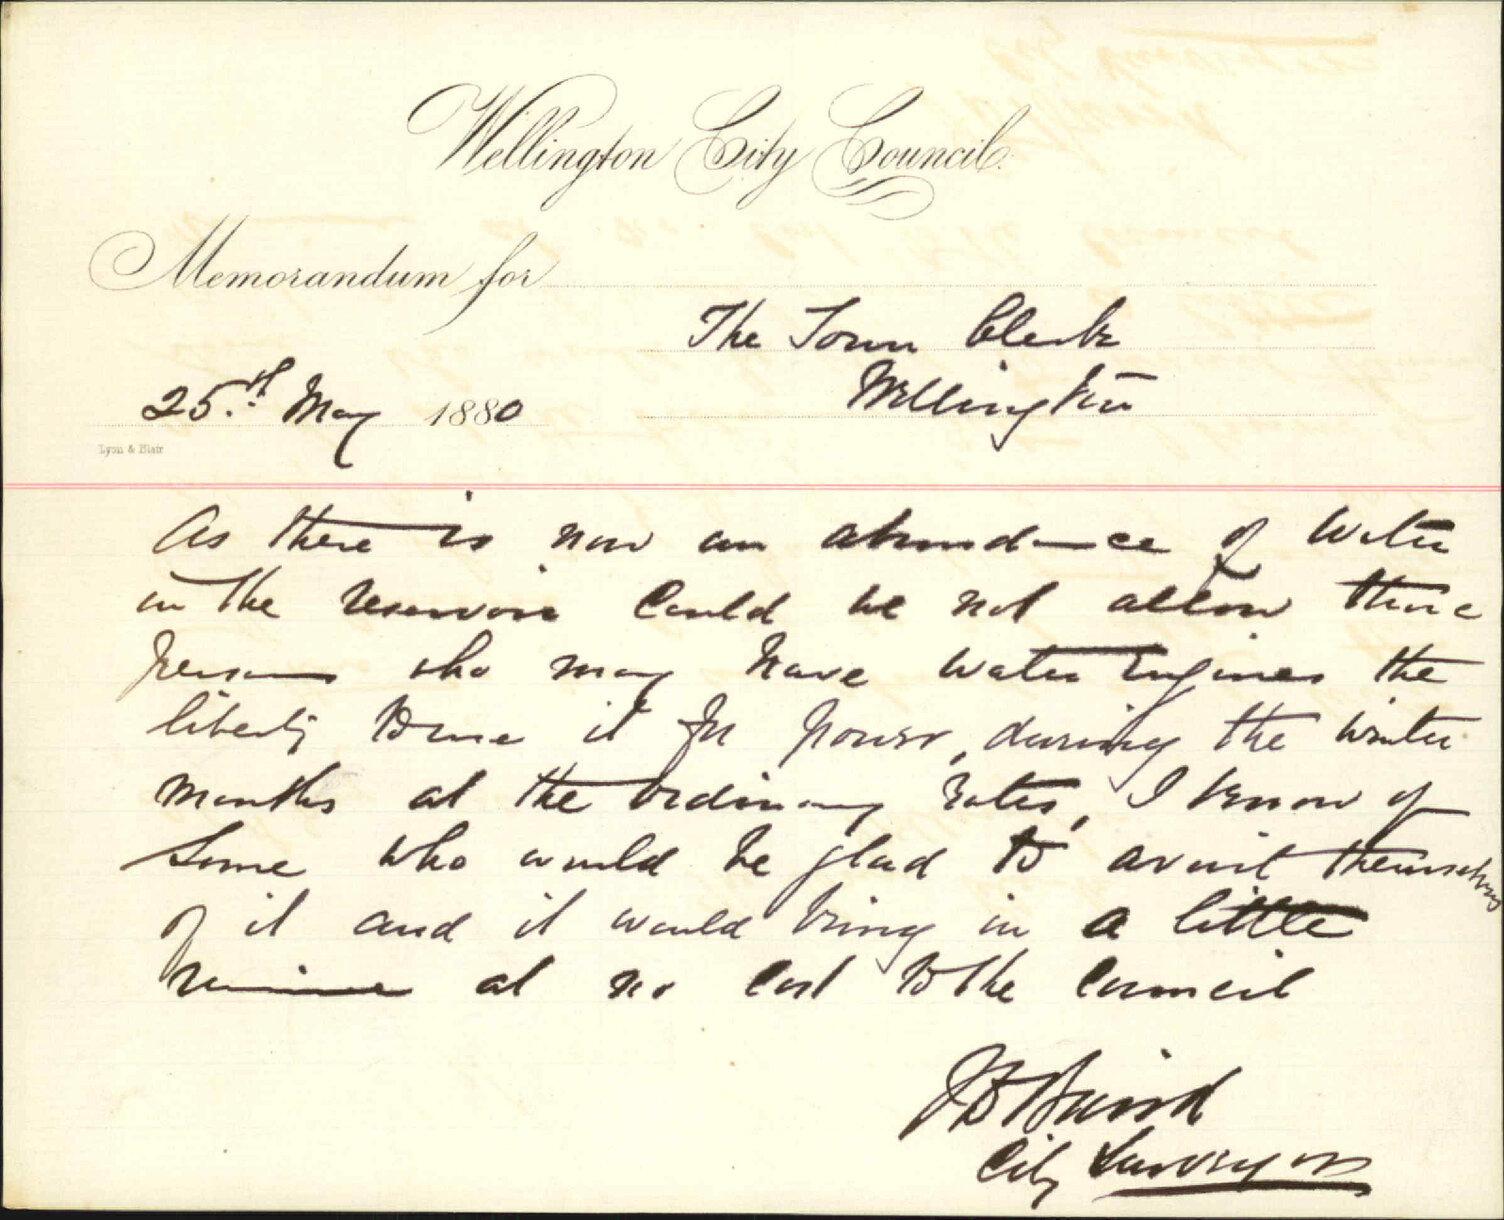 Wellington City Council.
Memorandum for
The Town Clerk
Wellington
25th May 1880
Lyon & Blair
As there is now an abundance of water
in the reservoir could we not allow those
persons who may have water Engines the
liberty to use it for power, during the winter
months at the ordinary rates, I know of
some who would be glad to avail themselves
of it and it would bring in a little
revenue at no cost to the Council
J D Baird
City Surveyor